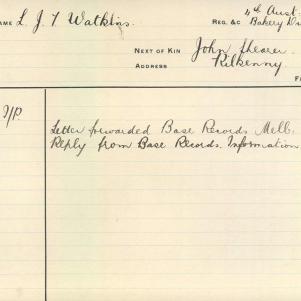 NAME L J T Watkins.
4th Aust.
REG. &C Bakery
NEXT OF KIN John Shearer
ADDRESS Kilkenny
F
I/P.
Letter forwarded Base Records Melb.
Reply from Base Records. Information